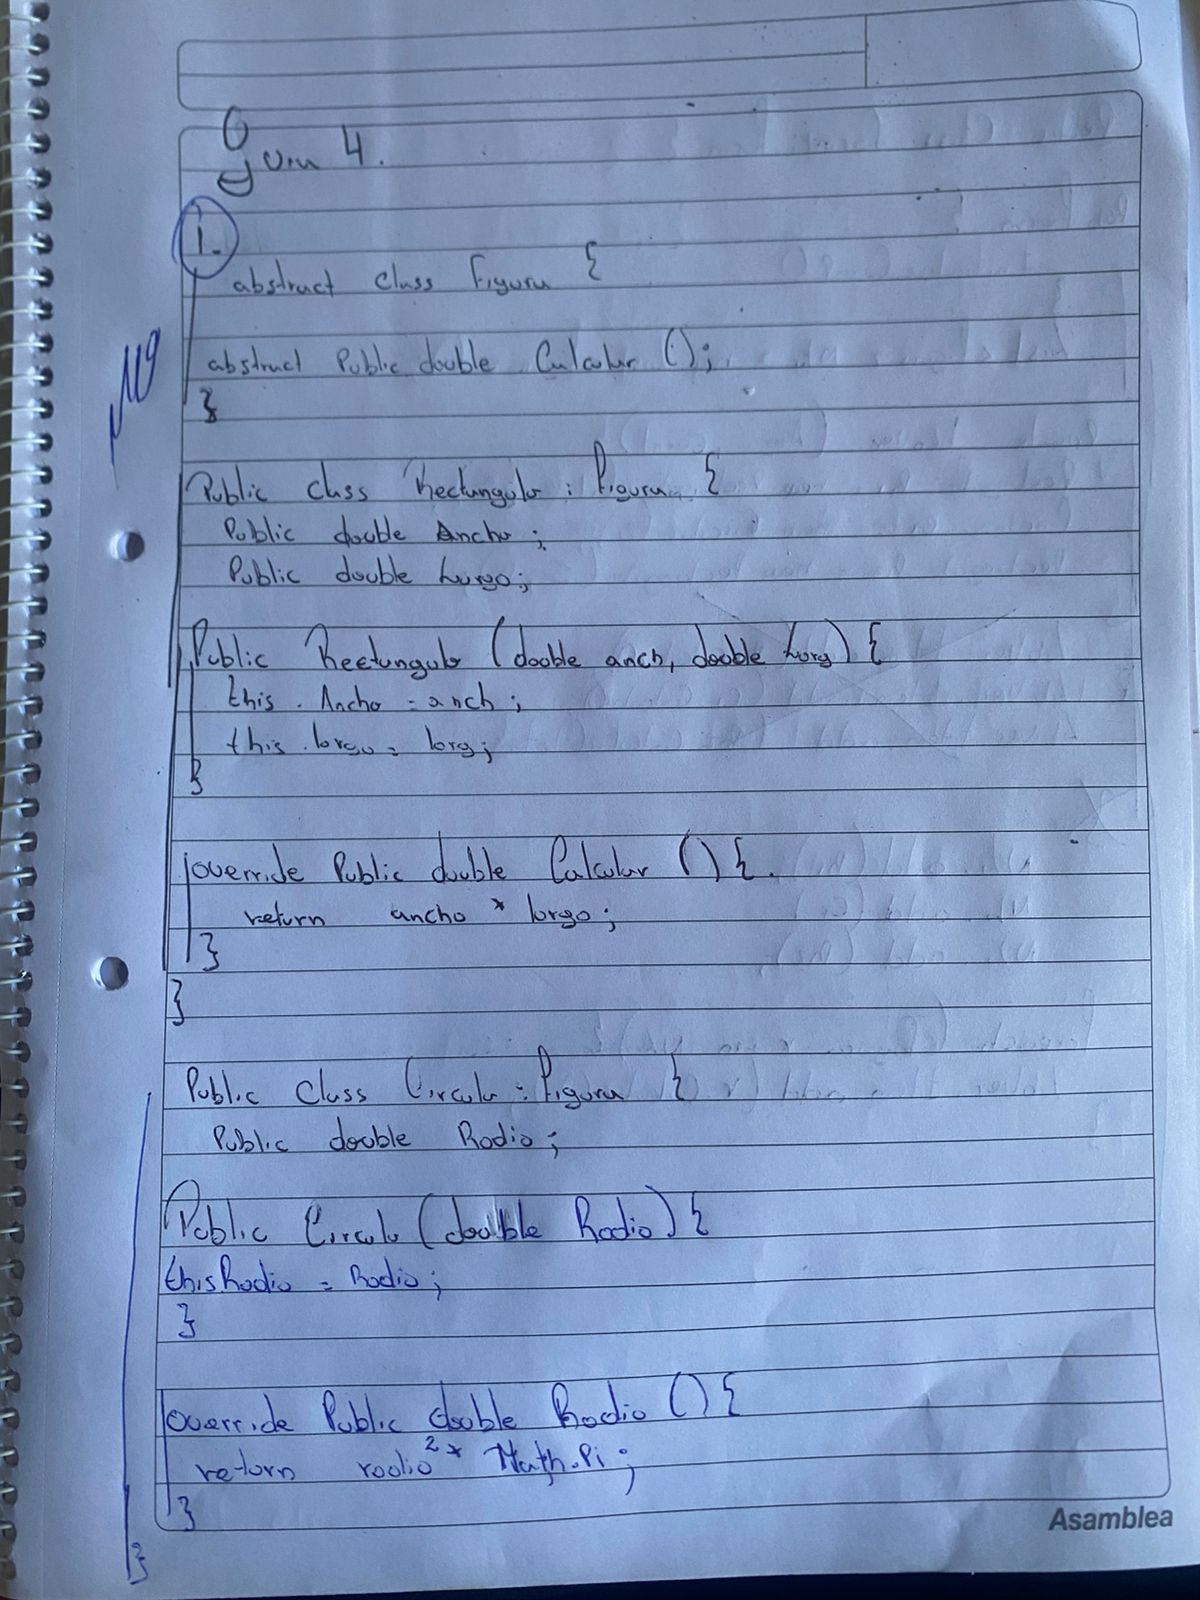 Guia 4.
1.
abstract class Figura {
abstract Public double Calcular ();
}
Public class Rectangulo : Figura {
Public double Ancho ;
Public double Largo ;
Public Rectangulo (double anch, double Larg) {
this . Ancho = anch ;
this . largo = larg ;
}
override Public double Calcular () {
return ancho * largo ;
}
}
Public Class Circulo : Figura {
Public double Radio ;
Public Circulo (double Radio) {
this Radio = Radio ;
}
override Public double Radio () {
return radio² * Math.Pi ;
}
}
Asamblea